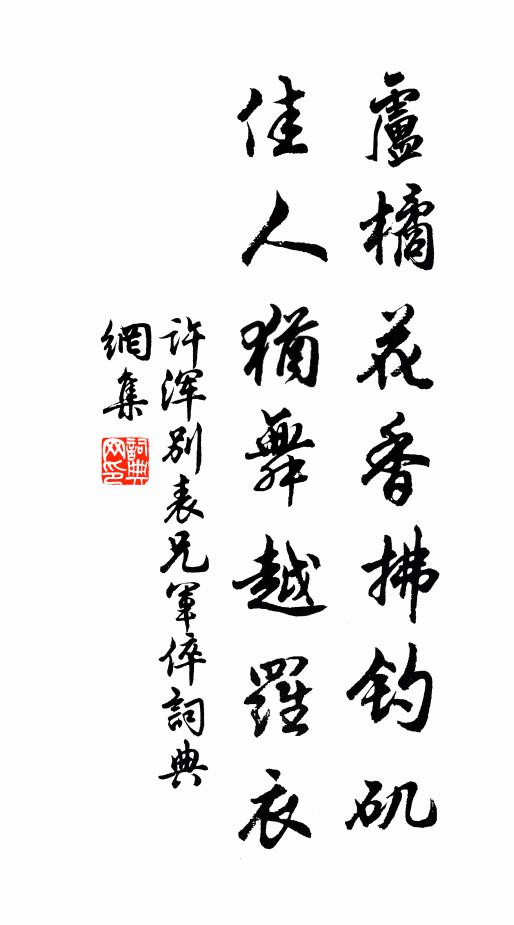 盧橘花香拂釣矶
佳人猶舞越羅衣
許渾別表兄軍倅詞典
網集
詞典網印